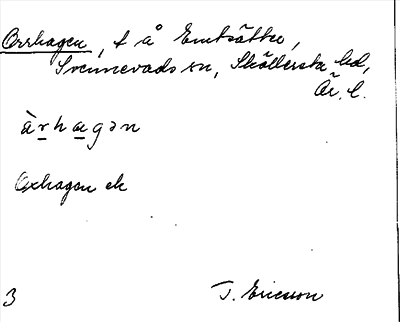 Orrhagen, t å Emtsätter,
Svennevads sn, Sköllersta hd,
Ör. l.
àrhagən
Oxhagen ek
3 T. Ericsson